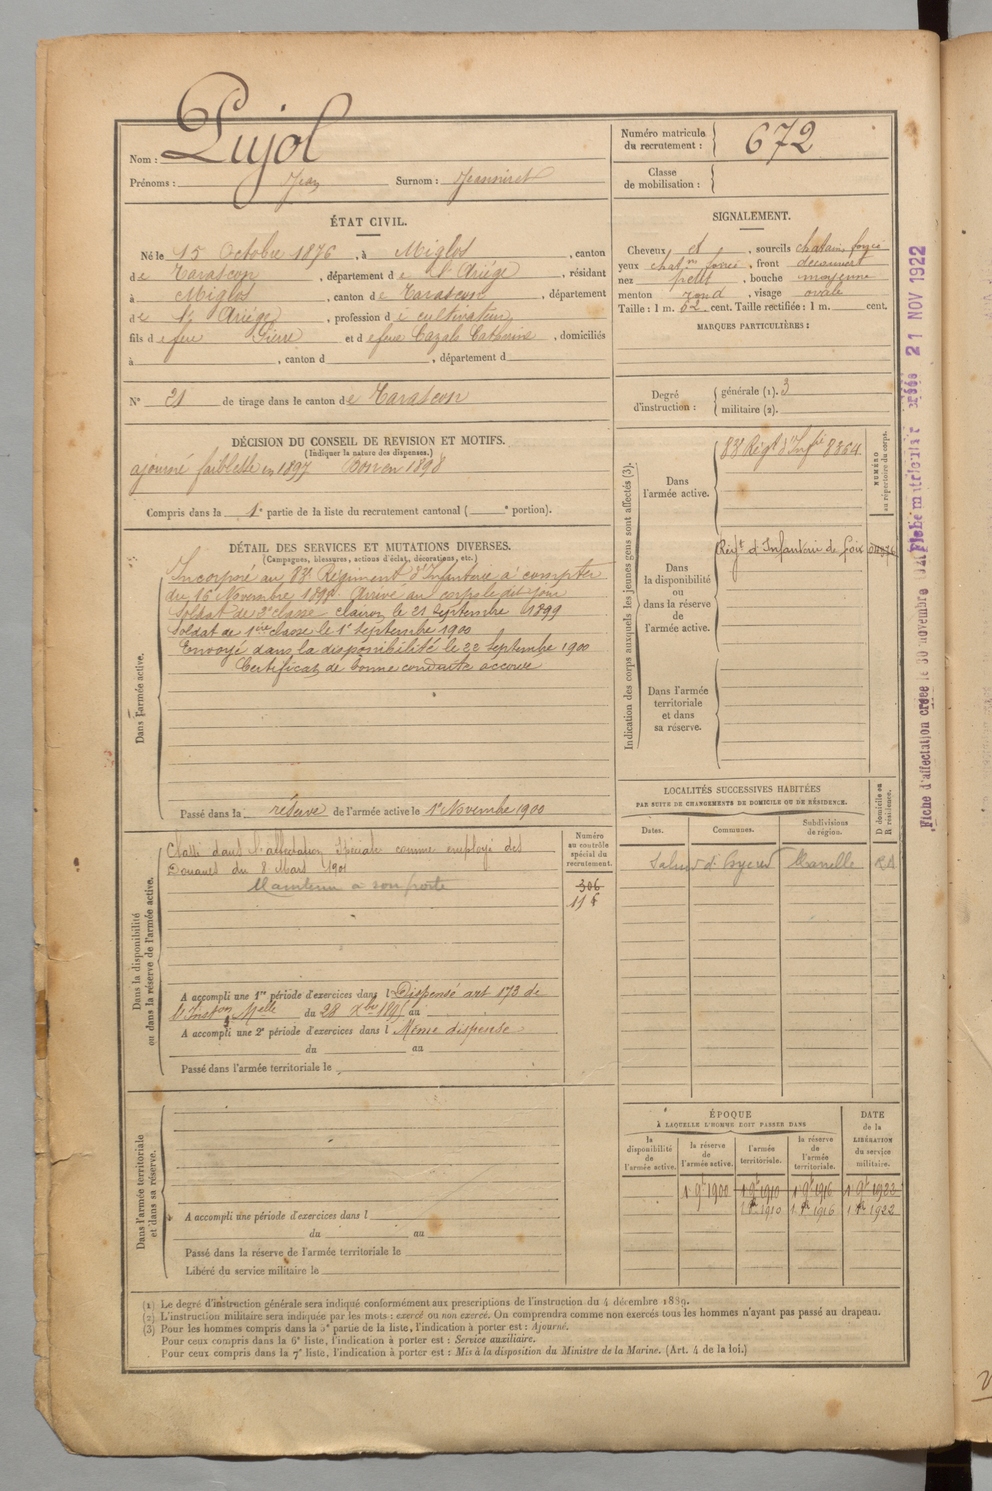 Nom : Pujol
Prénoms : Jean Surnom : Jeanninet
Numéro matricule du recrutement : 672
Classe de mobilisation :
ÉTAT CIVIL.
Né le 15 Octobre 1876, à Miglos, canton
de Tarascon, département de l'Ariége, résidant
à Miglos, canton de Tarascon, département
de l'Ariége, profession de cultivateur,
fils de feu Pierre et de feue Cazals Catherine, domiciliés
à , canton d , département d
N° 21 de tirage dans le canton de Tarascon
SIGNALEMENT.
Cheveux et , sourcils chatains foncés
yeux chat.ns foncés , front découvert
nez petit , bouche moyenne
menton rond , visage ovale
Taille : 1 m. 62 cent. Taille rectifiée : 1 m. cent.
MARQUES PARTICULIÈRES :
Degré d'instruction : générale (1). 3
militaire (2).
DÉCISION DU CONSEIL DE REVISION ET MOTIFS.
(Indiquer la nature des dispenses.)
ajourné faiblesse en 1897 Bon en 1898
Compris dans la 1e partie de la liste du recrutement cantonal ( e portion).
DÉTAIL DES SERVICES ET MUTATIONS DIVERSES.
(Campagnes, blessures, actions d'éclat, décorations, etc.)
Dans l'armée active.
Incorporé au 83e Régiment d'Infanterie à compter
du 16 Novembre 1898. Arrivé au corps le dit jour
Soldat de 2e classe clairon le 21 Septembre 1899
Soldat de 1ère classe le 1er Septembre 1900
Envoyé dans la disponibilité le 22 Septembre 1900
Certificat de bonne conduite accordé
Passé dans la réserve de l'armée active le 1er Novembre 1900
Indication des corps auxquels les jeunes gens sont affectés (3).
NUMÉRO au répertoire du corps.
Dans l'armée active.
83e Régt d'Infie 8364
Dans la disponibilité ou dans la réserve de l'armée active.
Régt d'Infanterie de Foix
Dans l'armée territoriale et dans sa réserve.
LOCALITÉS SUCCESSIVES HABITÉES
PAR SUITE DE CHANGEMENTS DE DOMICILE OU DE RÉSIDENCE.
Dates. Communes. Subdivisions de région. D domicile ou R résidence.
Salins d'Hyères Marseille
Dans la disponibilité ou dans la réserve de l'armée active.
Numéro au contrôle spécial du recrutement.
Classé dans l'affectation Spéciale comme employé des
Douanes du 8 Mars 1901
Maintenu à son poste
306
A accompli une 1re période d'exercices dans l Dispensé art 173 de
l'Inston Melle du 28 Xbre 1895 au
A accompli une 2e période d'exercices dans l Même dispense
du au
Passé dans l'armée territoriale le
Dans l'armée territoriale et dans sa réserve.
A accompli une période d'exercices dans l
du au
Passé dans la réserve de l'armée territoriale le
Libéré du service militaire le
ÉPOQUE
À LAQUELLE L'HOMME DOIT PASSER DANS
la disponibilité de l'armée active. la réserve de l'armée active. l'armée territoriale. la réserve de l'armée territoriale.
DATE de la LIBÉRATION du service militaire.
1 9e 1900 1 9e 1910 1 9e 1916 1 9e 1923
1 1910 1 1916 1 1922
(1) Le degré d'instruction générale sera indiqué conformément aux prescriptions de l'instruction du 4 décembre 1889.
(2) L'instruction militaire sera indiquée par les mots : exercé ou non exercé. On comprendra comme non exercés tous les hommes n'ayant pas passé au drapeau.
(3) Pour les hommes compris dans la 5e partie de la liste, l'indication à porter est : Ajourné.
Pour ceux compris dans la 6e liste, l'indication à porter est : Service auxiliaire.
Pour ceux compris dans la 7e liste, l'indication à porter est : Mis à la disposition du Ministre de la Marine. (Art. 4 de la loi.)
Fiche matricule créées 21 NOV 1922
Fiche d'affectation créée le 30 novembre